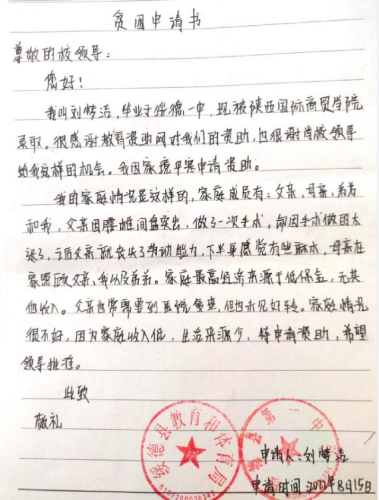 贫困申请书
尊敬的校领导：
您好！
我叫刘梦洁，毕业于绥德一中，现被陕西国际商贸学院
录取。很感谢教育资助网对我们的资助，也很谢谢校领导
给我这样的机会。我因家境平寒申请资助。
我的家庭情况是这样的，家庭成员有：父亲、母亲、弟弟
和我，父亲因腰椎间盘突出，做了一次手术，却因手术做的太
晚了，术后父亲就丧失了劳动能力，下半身感觉有些麻木，母亲在
家照顾父亲、我以及弟弟。家庭最高经济来源于低保金，无其
他收入。父亲日常需要到医院复查，但也未见好转。家庭情况
很不好，因为家庭收入低，生活来源少，特申请资助，希望
领导批准。
此致
敬礼
绥德县教育和体育局
第一中
申请人：刘梦洁
申请时间：2022年8月15日